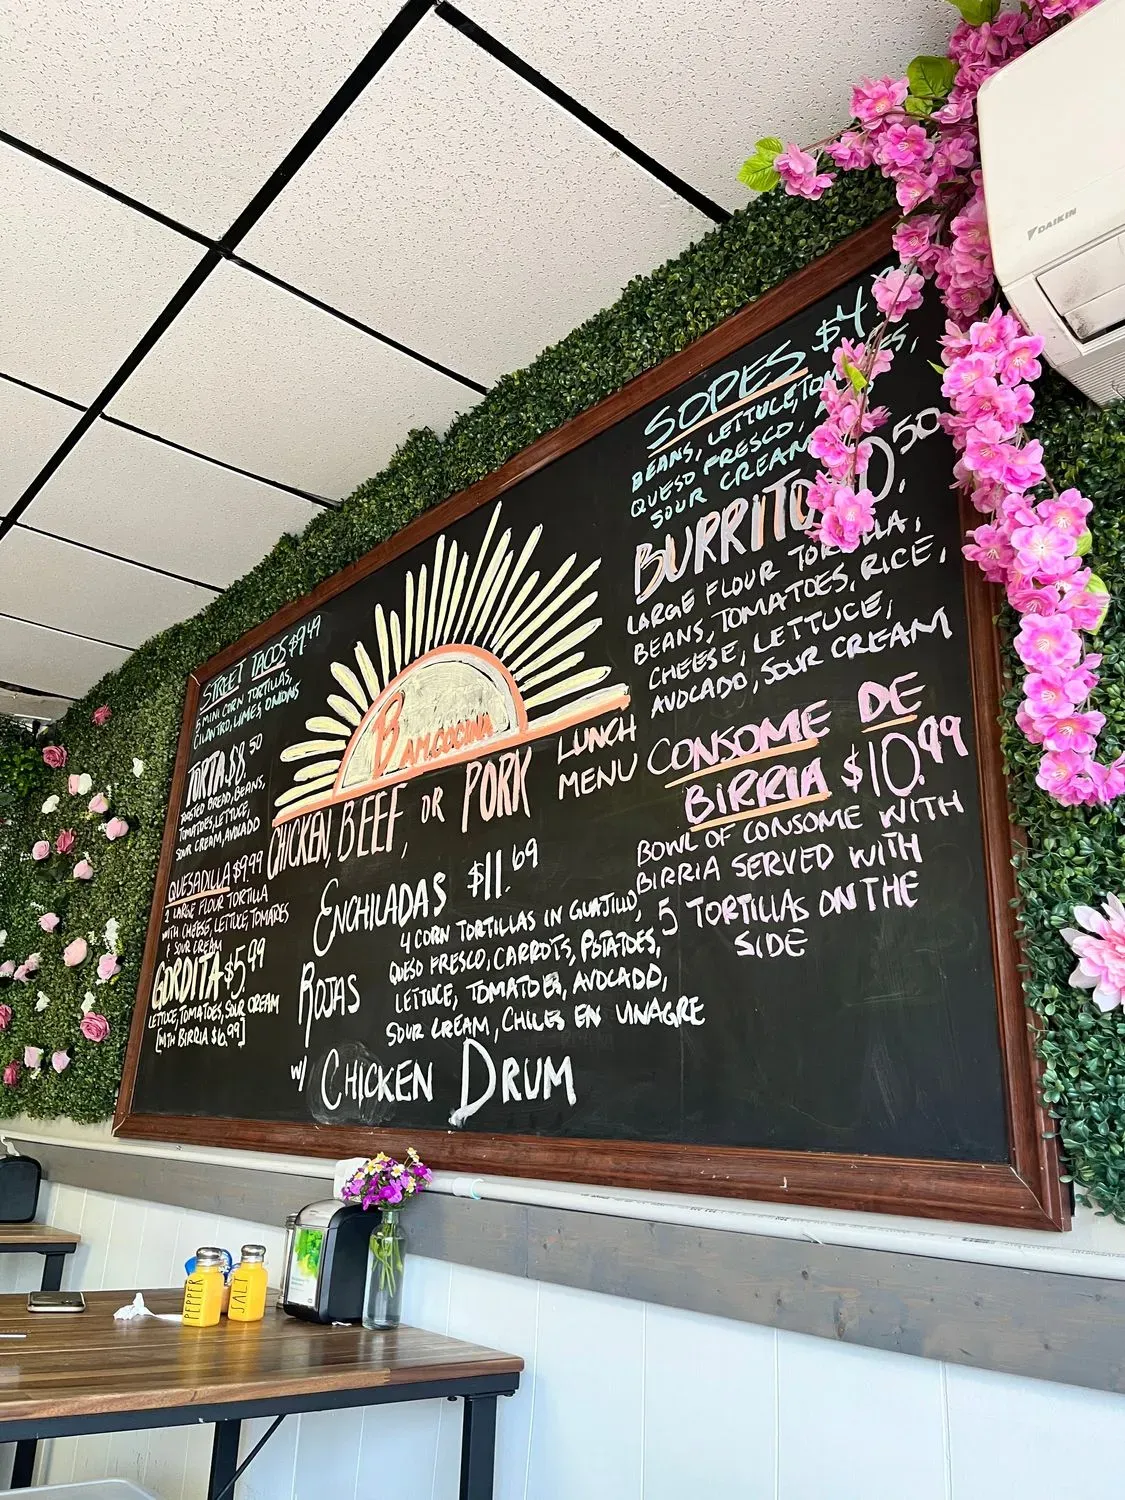 STREET TACOS $9.49
5 MINI CORN TORTILLAS,
CILANTRO, LIMES, ONIONS
TORTA $8.50
TOASTED BREAD, BEANS,
TOMATOES, LETTUCE,
SOUR CREAM, AVOCADO
QUESADILLA $9.99
1 LARGE FLOUR TORTILLA
WITH CHEESE, LETTUCE, TOMATOES
& SOUR CREAM
GORDITA $5.99
LETTUCE, TOMATOES, SOUR CREAM
[WITH BIRRIA $6.99]
B AM.COCINA
LUNCH
MENU
CHICKEN, BEEF, OR PORK
ENCHILADAS $11.69
ROJAS
4 CORN TORTILLAS IN GUAJILLO,
QUESO FRESCO, CARROTS, POTATOES,
LETTUCE, TOMATOES, AVOCADO,
SOUR CREAM, CHILES EN VINAGRE
W/ CHICKEN DRUM
SOPES $4
BEANS, LETTUCE,
QUESO FRESCO,
SOUR CREAM
BURRITO 50
LARGE FLOUR TORTILLA,
BEANS, TOMATOES, RICE,
CHEESE, LETTUCE,
AVOCADO, SOUR CREAM
CONSOME DE
BIRRIA $10.99
BOWL OF CONSOME WITH
BIRRIA SERVED WITH
5 TORTILLAS ON THE
SIDE
DAIKIN
PEPPER
SALT